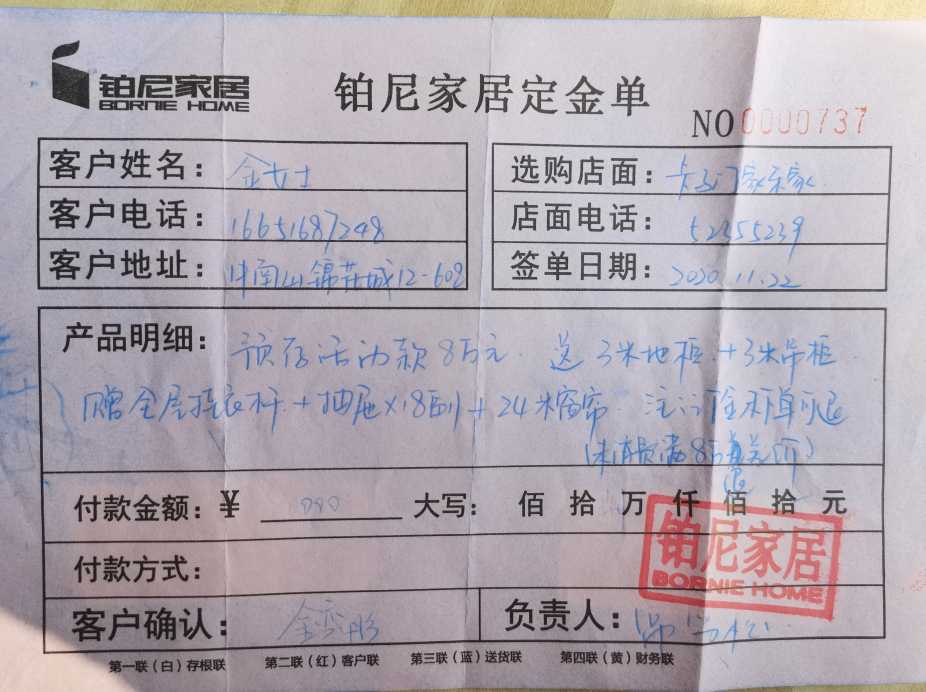 铂尼家居
BORNIE HOME
铂尼家居定金单
NO 0000737
客户姓名: 金女士
客户电话: 16651687248
客户地址: 钟南山锦花城12-602
选购店面: 卡子门家乐家
店面电话: 52355239
签单日期: 2020.11.22
产品明细: 预存活动款8万元. 送3米地柜+3米吊柜
赠全屋挂衣杆+抽屉×18副+24米窗帘. 注:订金不单可退
(未消费满8万
付款金额: ¥ 大写: 佰 拾 万 仟 佰 拾 元
付款方式:
铂尼家居
BORNIE HOME
客户确认: 负责人:
第一联(白)存根联 第二联(红)客户联 第三联(蓝)送货联 第四联(黄)财务联